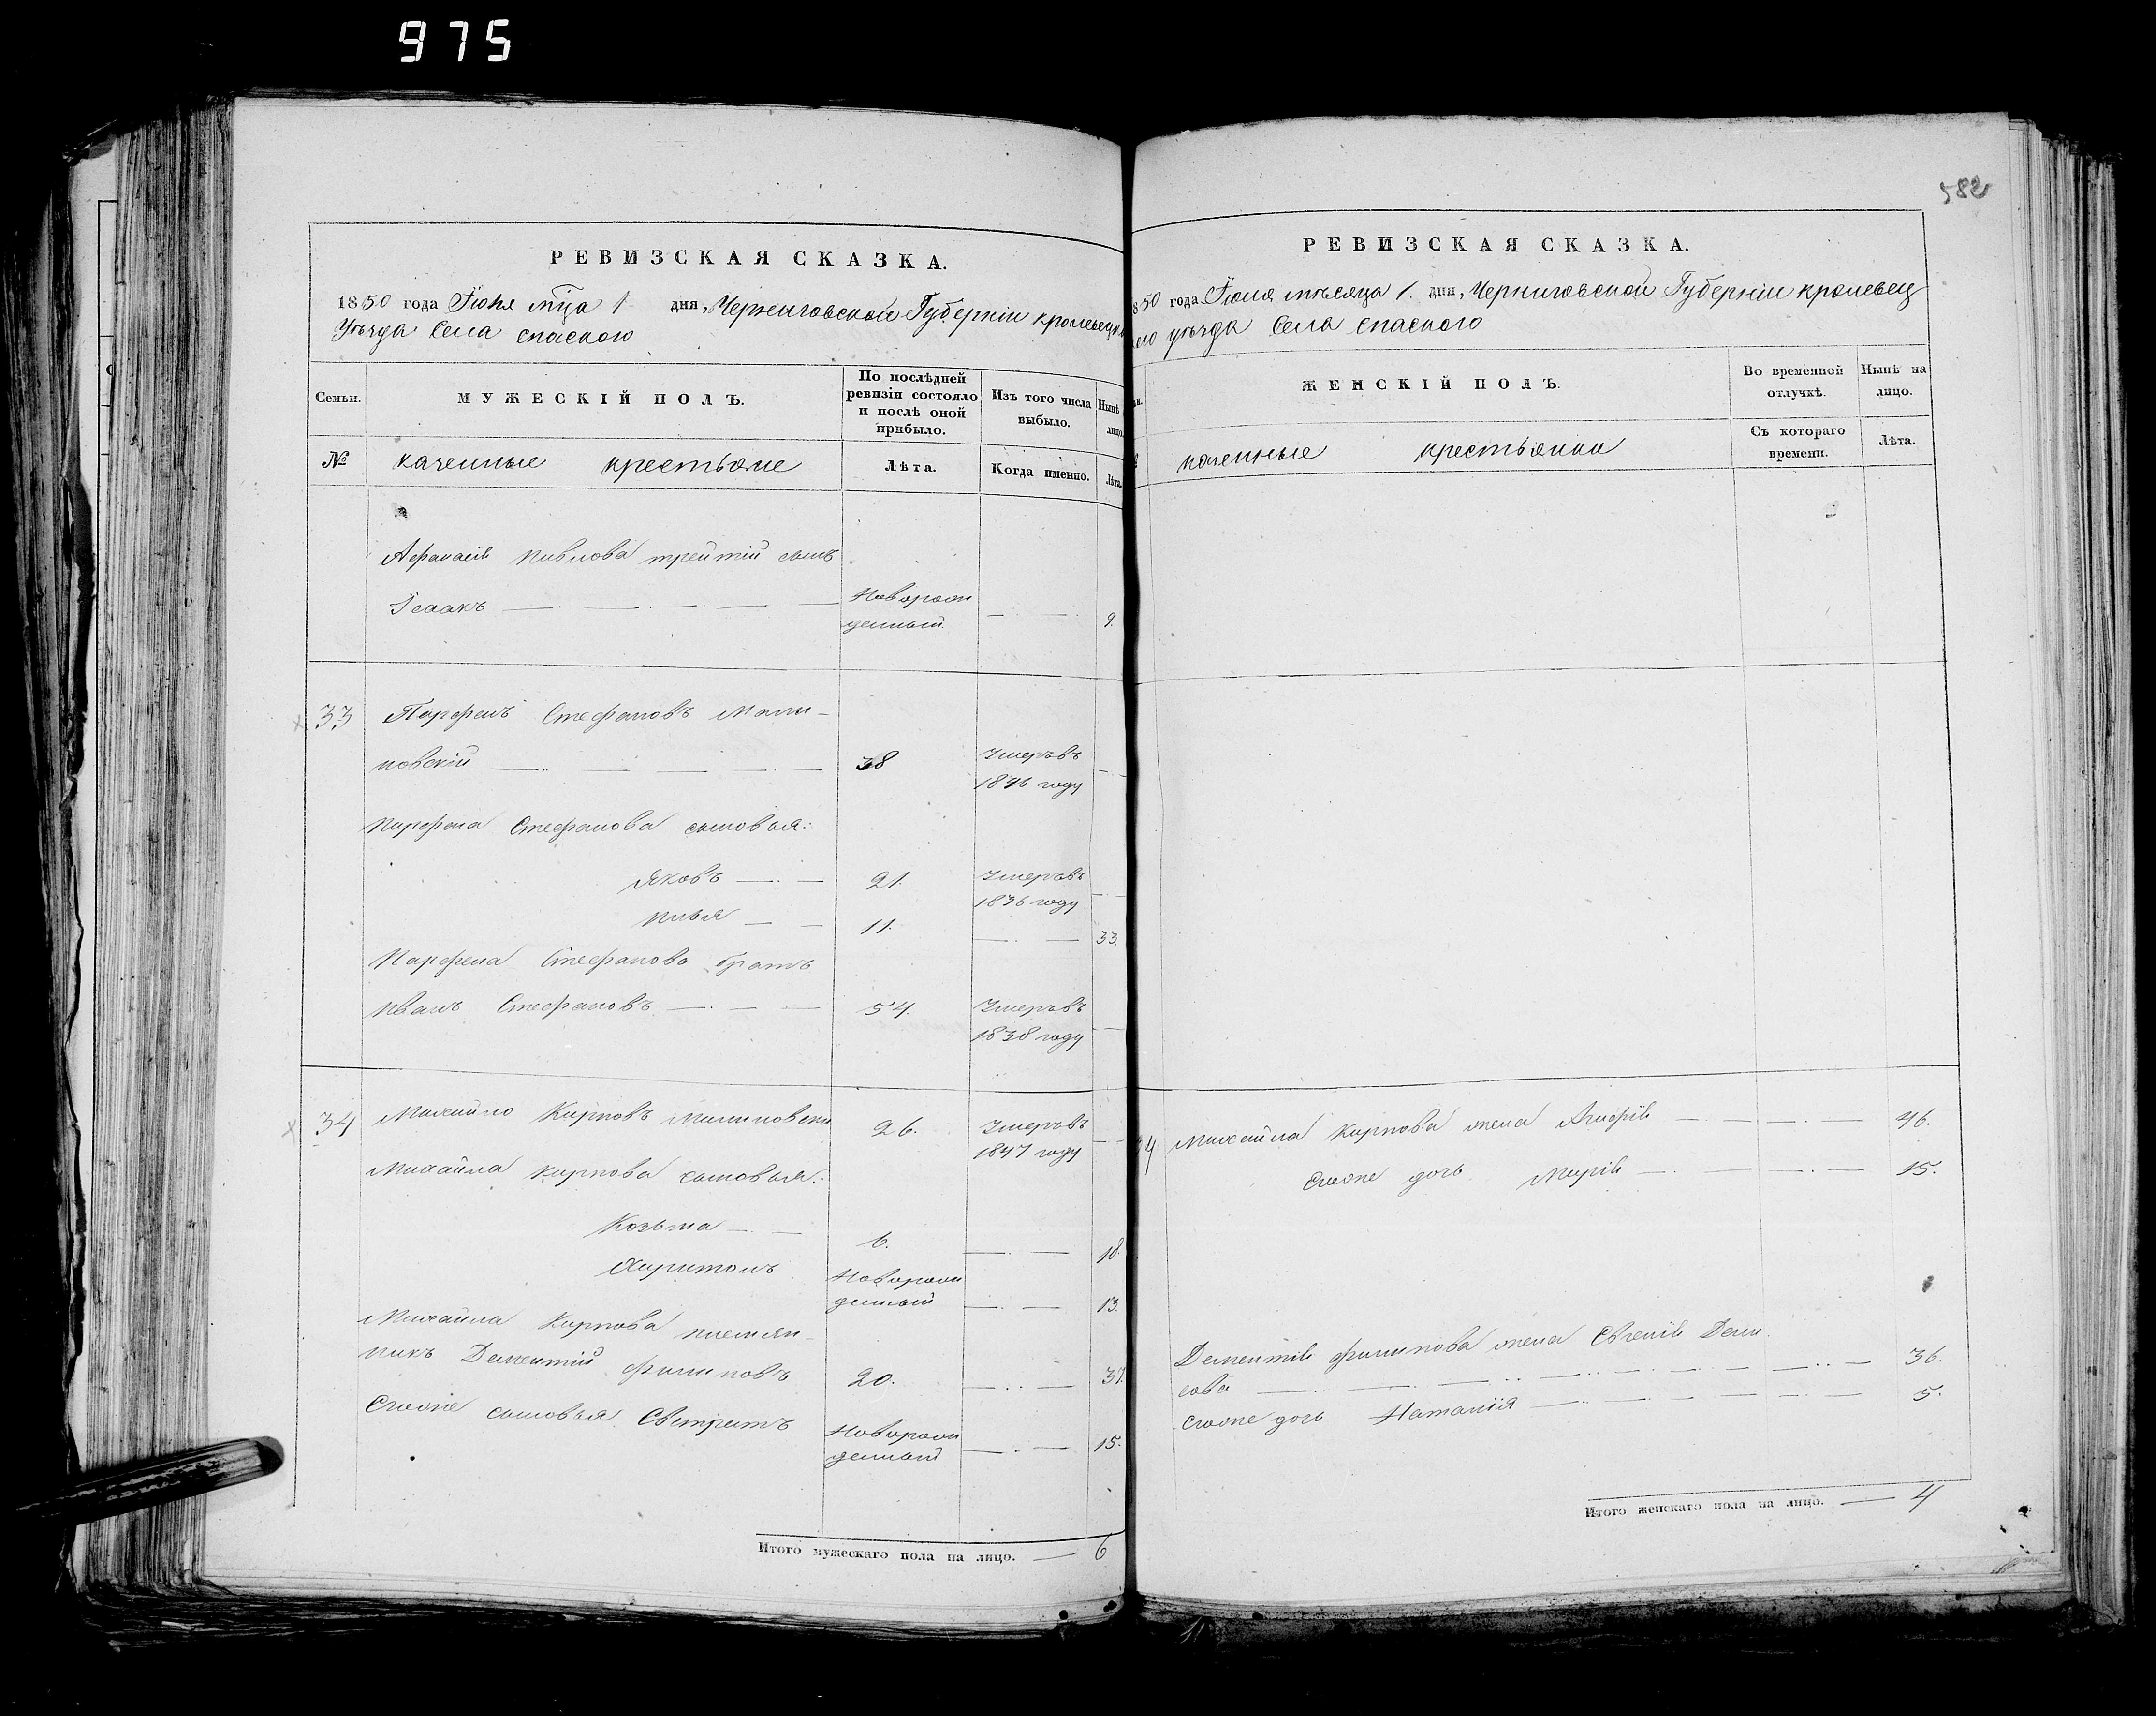 975
582
РЕВИЗСКАЯ СКАЗКА.
1850 года Іюня мца 1 дня, Черниговской Губерніи кролевецк
Уѣзда Села спаского
Семьи.
МУЖЕСКІЙ ПОЛЪ.
По послѣдней ревизіи состояло и послѣ оной прибыло.
Изъ того числа выбыло.
Нынѣ лицо.
№
казенные крестьяне
Лѣта.
Когда именно.
Лѣта.
Афанасія Павлова трейтій сынъ
Ісаакъ — Новорож
денный — 9.
33 Парфенъ Стефановъ Мали-
новскій — 38 Умеръ въ
1846 году
Парфена Стефанова сыновья:
Яковъ — 21. Умеръ въ
1836 году
Илья — 11. — 33.
Парфена Стефанова братъ
Иванъ Стефановъ — 54. Умеръ въ
1838 году
34 Михайло Карповъ Малиновски 26. Умеръ въ
1847 году
Михайла Карпова сыновья:
Козьма — 6. — 18.
Харитонъ Новорож
денный — 13.
Михайла Карпова племян-
никъ Дементій Филиповъ 20. — 37.
Егоже сыновья Евстратъ Новорож
денный — 15.
Итого мужескаго пола на лицо. — 6
РЕВИЗСКАЯ СКАЗКА.
50 года Іюня мѣсяца 1. дня, Черниговской Губерніи кролевец
ого уѣзда Села спаского
ЖЕНСКІЙ ПОЛЪ.
Во временной отлучкѣ.
Нынѣ на лицо.
казенные крестьянки
Съ котораго времени.
Лѣта.
34 Михайла Карпова жена Агафія — 46.
Егоже дочь Марія — 15.
Дементія Филипова жена Евгенія Дени
сова — 36.
Егоже дочь Наталія — 5.
Итого женскаго пола на лицо. — 4